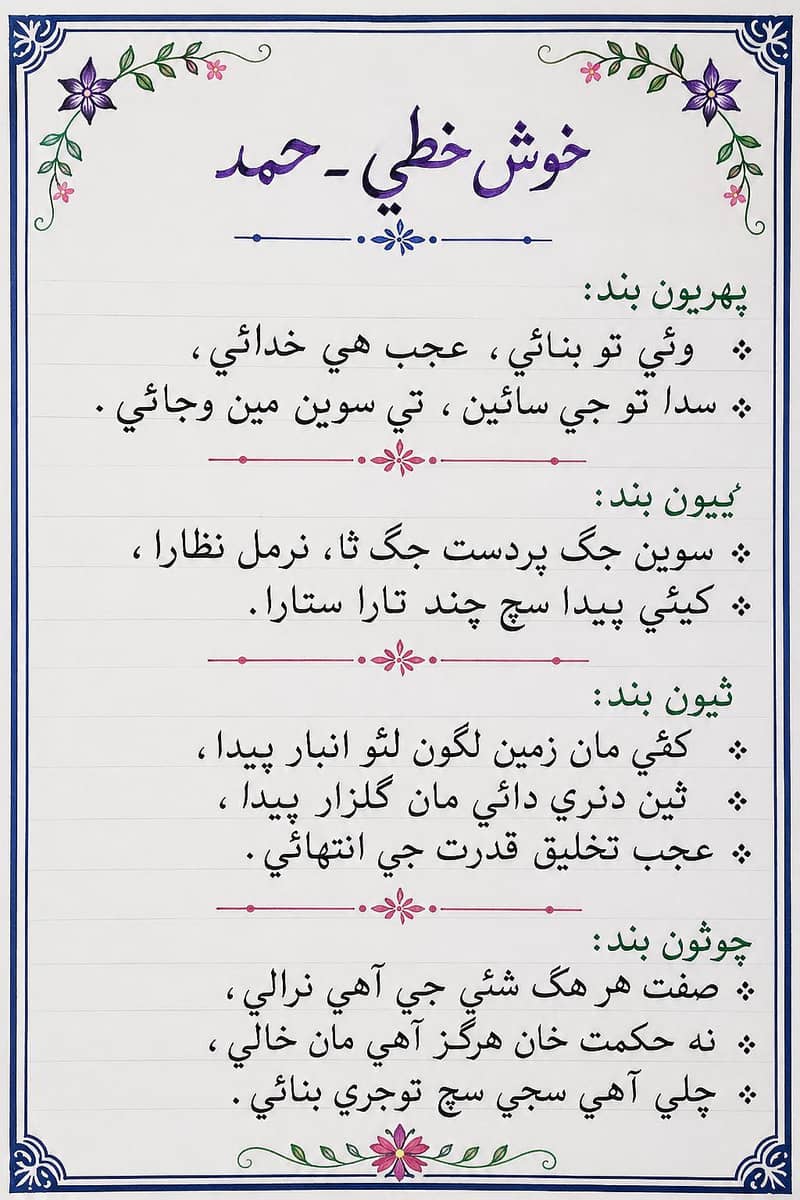 خوش خطي ـ حمد
پهريون بند:
وئي تو بنائي، عجب هي خدائي،
سدا تو جي سائين، تي سوين مين وجائي.
ٻييون بند:
سوين جگ پردست جگ ثا، نرمل نظارا،
کيئي پيدا سچ چند تارا ستارا.
ثيون بند:
کئي مان زمين لگون لئو انبار پيدا،
ثين دنري دائي مان گلزار پيدا،
عجب تخليق قدرت جي انتهائي.
چوثون بند:
صفت هر هگ شئي جي آهي نرالي،
نه حکمت خان هرگز آهي مان خالي،
چلي آهي سجي سچ توجري بنائي.